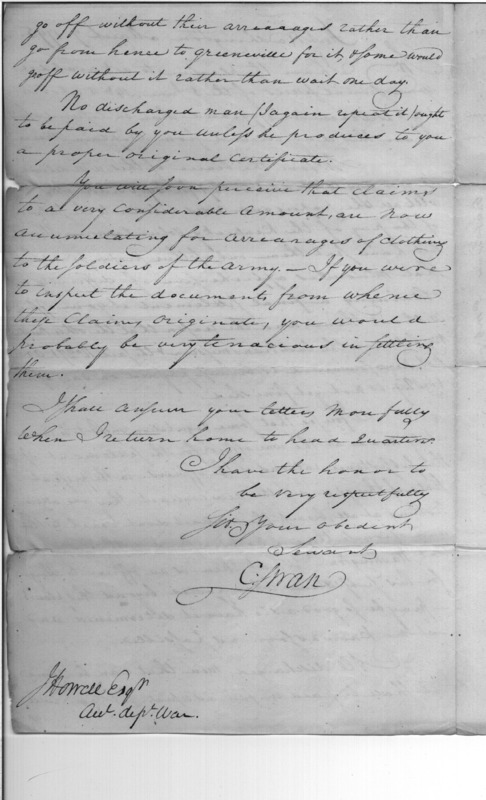 go off without their arrearages rather than
go from hence to greeneville for it, & some would
go off without it rather than wait one day.
No discharged man (I again repeat it) ought
to be paid by you unless he produces to you
a proper original certificate.
You will soon perceive that claims
to a very considerable amount, are now
accumulating for arrearages of clothing
to the soldiers of the army. — If you were
to inspect the documents from whence
these claims originate, you would
probably be very tenacious in settling
them.
I shall answer your letters more fully
when I return home to head quarters
I have the honor to
be very respectfully
Sir, Your obedient
Servant
C: Swan
J Howell Esqr.
Acct. dept. War.